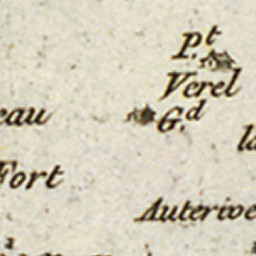 P.t
Verel
eau
G.d
la
Fort
Auterive